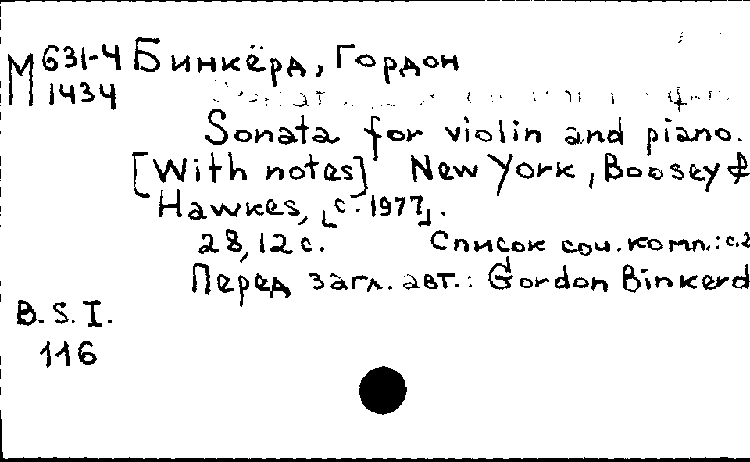 М 631-4 Бинкёрд, Гордон
1434
Sonata for violin and piano.
[With notes] New York, Boosey &
Hawkes, [c. 1977].
28, 12 с. Список соч. комп.: с.2
Перед загл. авт.: Gordon Binkerd
B. S. I.
116